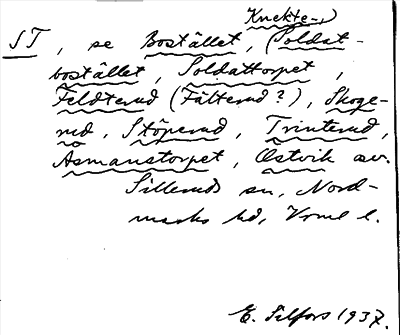 Knekte-,
ST, se Bostället, (Soldat-
bostället, Soldattorpet,
Feldterud (Fälterud?), Skoge-
rud, Stöperud, Trinterud,
Åsmanstorpet, Östvik sv.
Silleruds sn, Nord-
marks hd, Vrml l.
E. Silfors 1937.